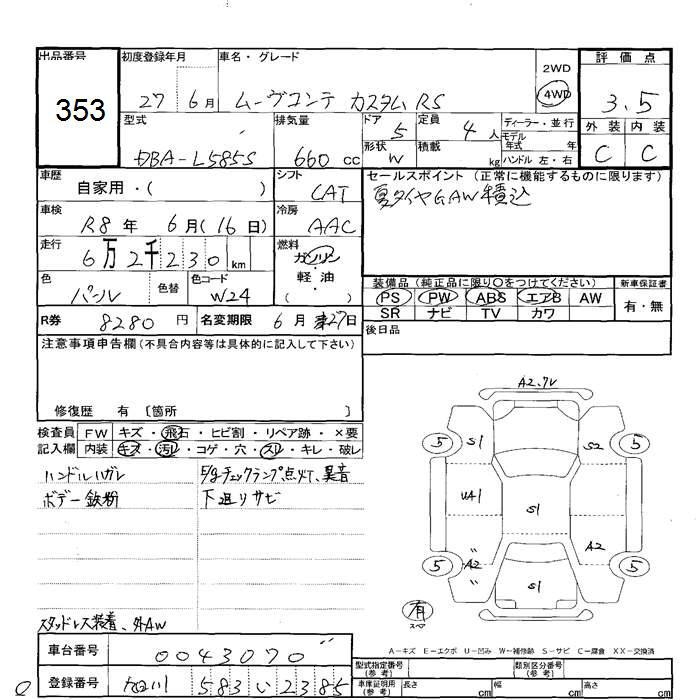 出品番号
353
初度登録年月
27年 6月
車名・グレード
ムーヴコンテ カスタム RS
2WD
4WD
評価点
3.5
外装 内装
C C
型式
DBA-L585S
排気量
660 cc
ドア
5
定員
4人
形状
W
積載
kg
ディーラー・並行
モデル年式 年
ハンドル 左・右
車歴
自家用・( )
シフト
CAT
セールスポイント (正常に機能するものに限ります)
夏タイヤGAW積込
車検
R8年 6月(16日)
冷房
AAC
走行
6万2千230km
燃料
ガソリン
・
軽油
( )
色
パール
色替
色コード
W24
装備品 (純正品に限り○をつけてください)
新車保証書
PS PW ABS エアB AW
SR ナビ TV カワ
有・無
R券
8280円
名変期限
6月27日
後日品
注意事項申告欄 (不具合内容等は具体的に記入して下さい)
修復歴 有 〔箇所 〕
検査員記入欄
FW キズ・飛石・ヒビ割・リペア跡・×要
内装 キズ・汚レ・コゲ・穴・スレ・キレ・破レ
ハンドルハガレ
ボデー鉄粉
E/gチェックランプ点灯、異音
下廻リサビ
スタッドレス装着、外AW
A2.ワレ
5 S1 S2 5
UA1
S1
A2
5 A2 5
S1
有
スペア
A-キズ E-エクボ U-凹み W-補修跡 S-サビ C-腐食 XX-交換済
車台番号
0043070
登録番号
旭川 583 い 2385
型式指定番号
(参考)
類別区分番号
(参考)
車庫証明用
(参考)
長さ cm
幅 cm
高さ cm